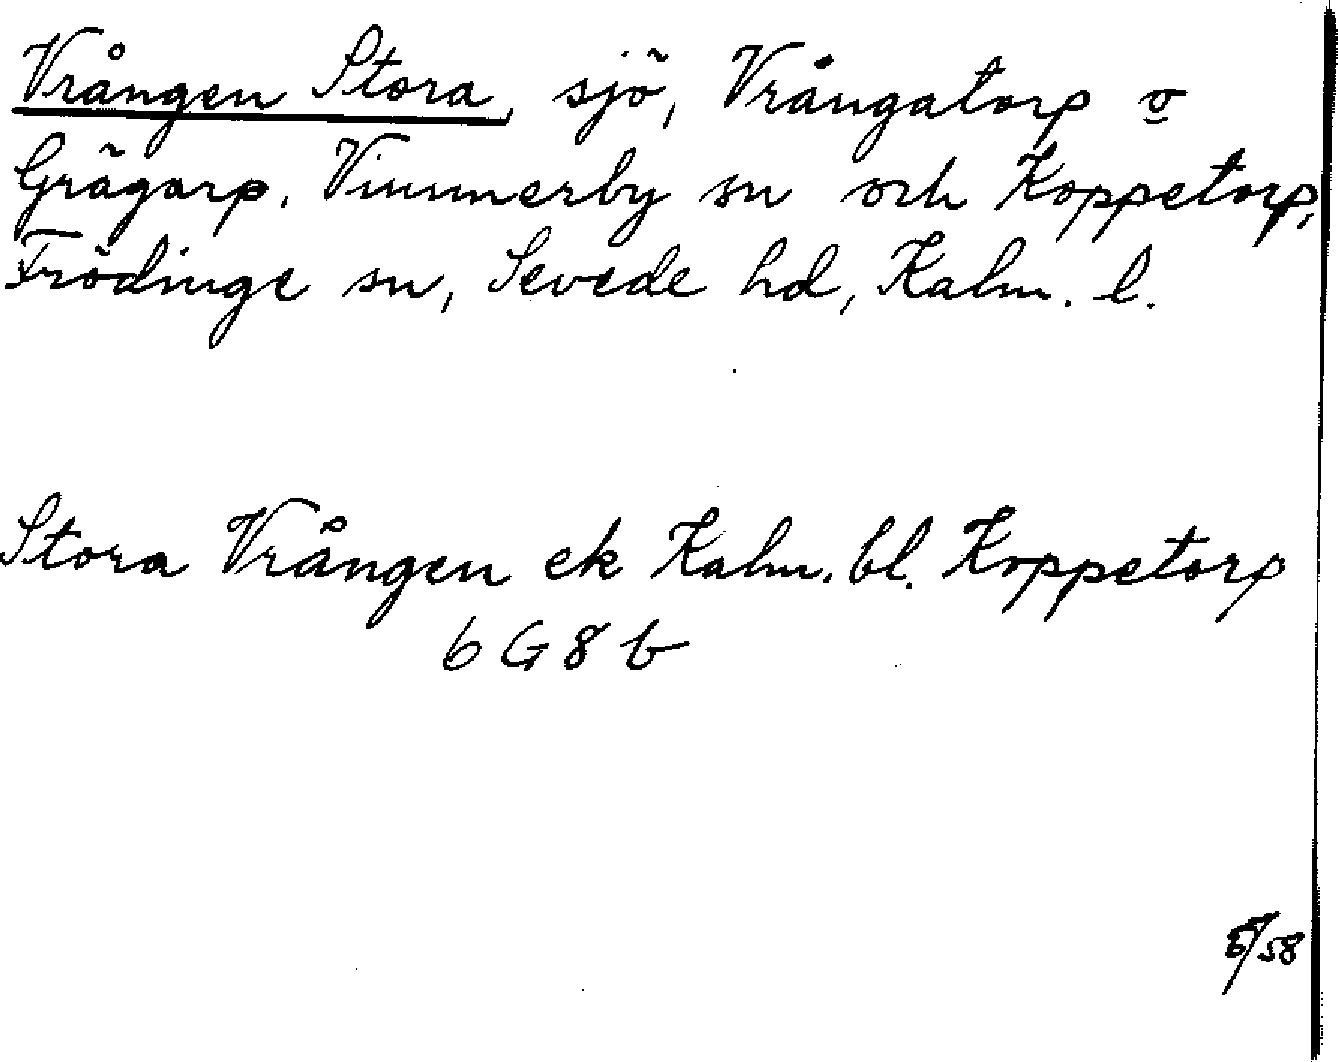 Vrången Stora, sjö, Vrångatorp o
Grågarp, Vimmerby sn och Koppetorp,
Frödinge sn, Sevede hd, Kalm. l.
Stora Vrången ek Kalm. bl. Koppetorp
6 G 8 b
/58